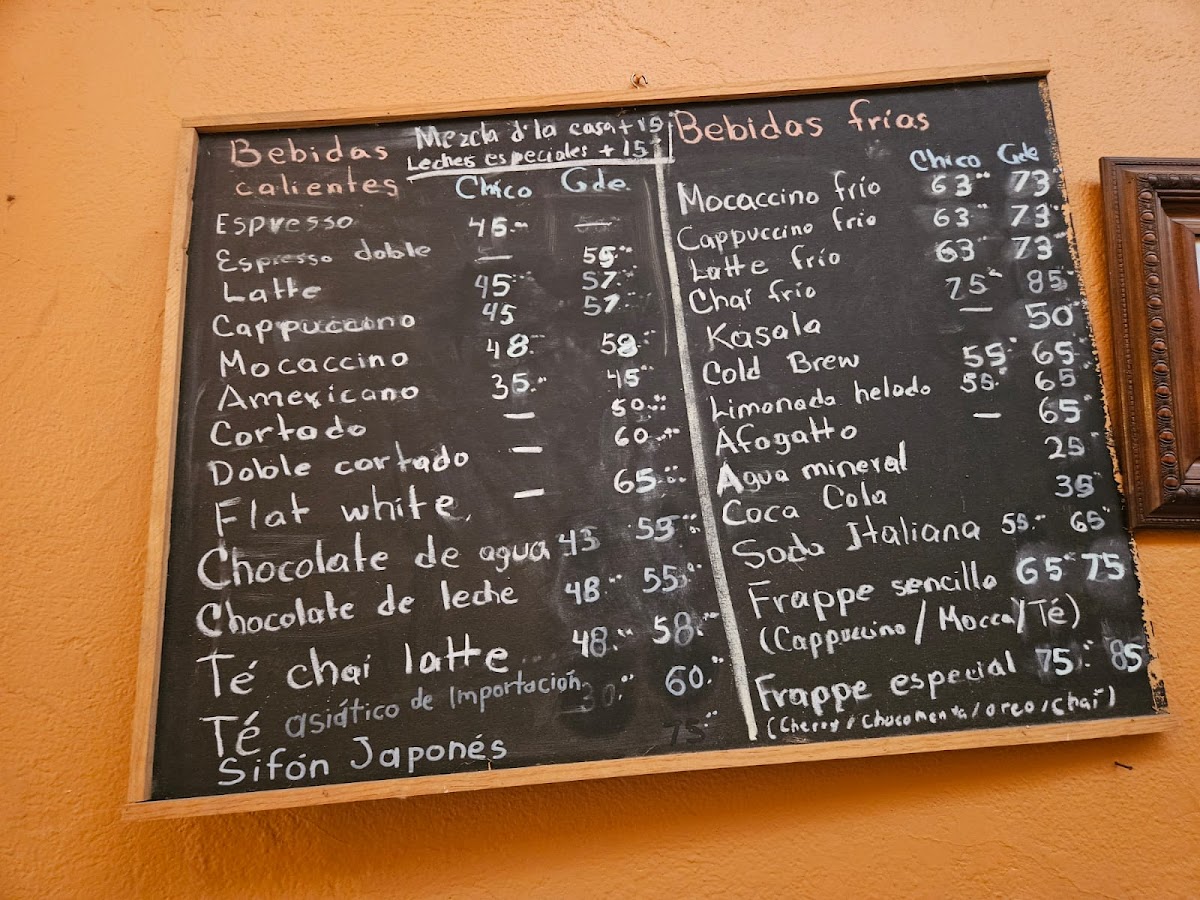 Bebidas calientes
Mezcla d' la casa + 15
Leches especiales + 15
Chico Gde.
Espresso 45.00
Espresso doble — 55.00
Latte 45.00 57.00
Cappuccino 45 57.00
Mocaccino 48.00 58.00
Americano 35.00 45.00
Cortado — 50.00
Doble cortado — 60.00
Flat white — 65.00
Chocolate de agua 43 53.00
Chocolate de leche 48.00 55.00
Té chai latte 48.00 58.00
Té asiático de Importación 30.00 60.00
Sifón Japonés 75.00
Bebidas frías
Chico Gde
Mocaccino frío 63.00 73.00
Cappuccino frío 63.00 73.00
Latte frío 63.00 73.00
Chai frío 75.00 85.00
Kasala — 50.00
Cold Brew 55.00 65.00
Limonada helado 55.00 65.00
Afogatto — 65.00
Agua mineral 25.00
Coca Cola 35.00
Soda Italiana 55.00 65.00
Frappe sencillo 65.00 75
(Cappuccino / Mocca / Té)
Frappe especial 75.00 85.00
(Cherry / Chocomenta / oreo / chai)